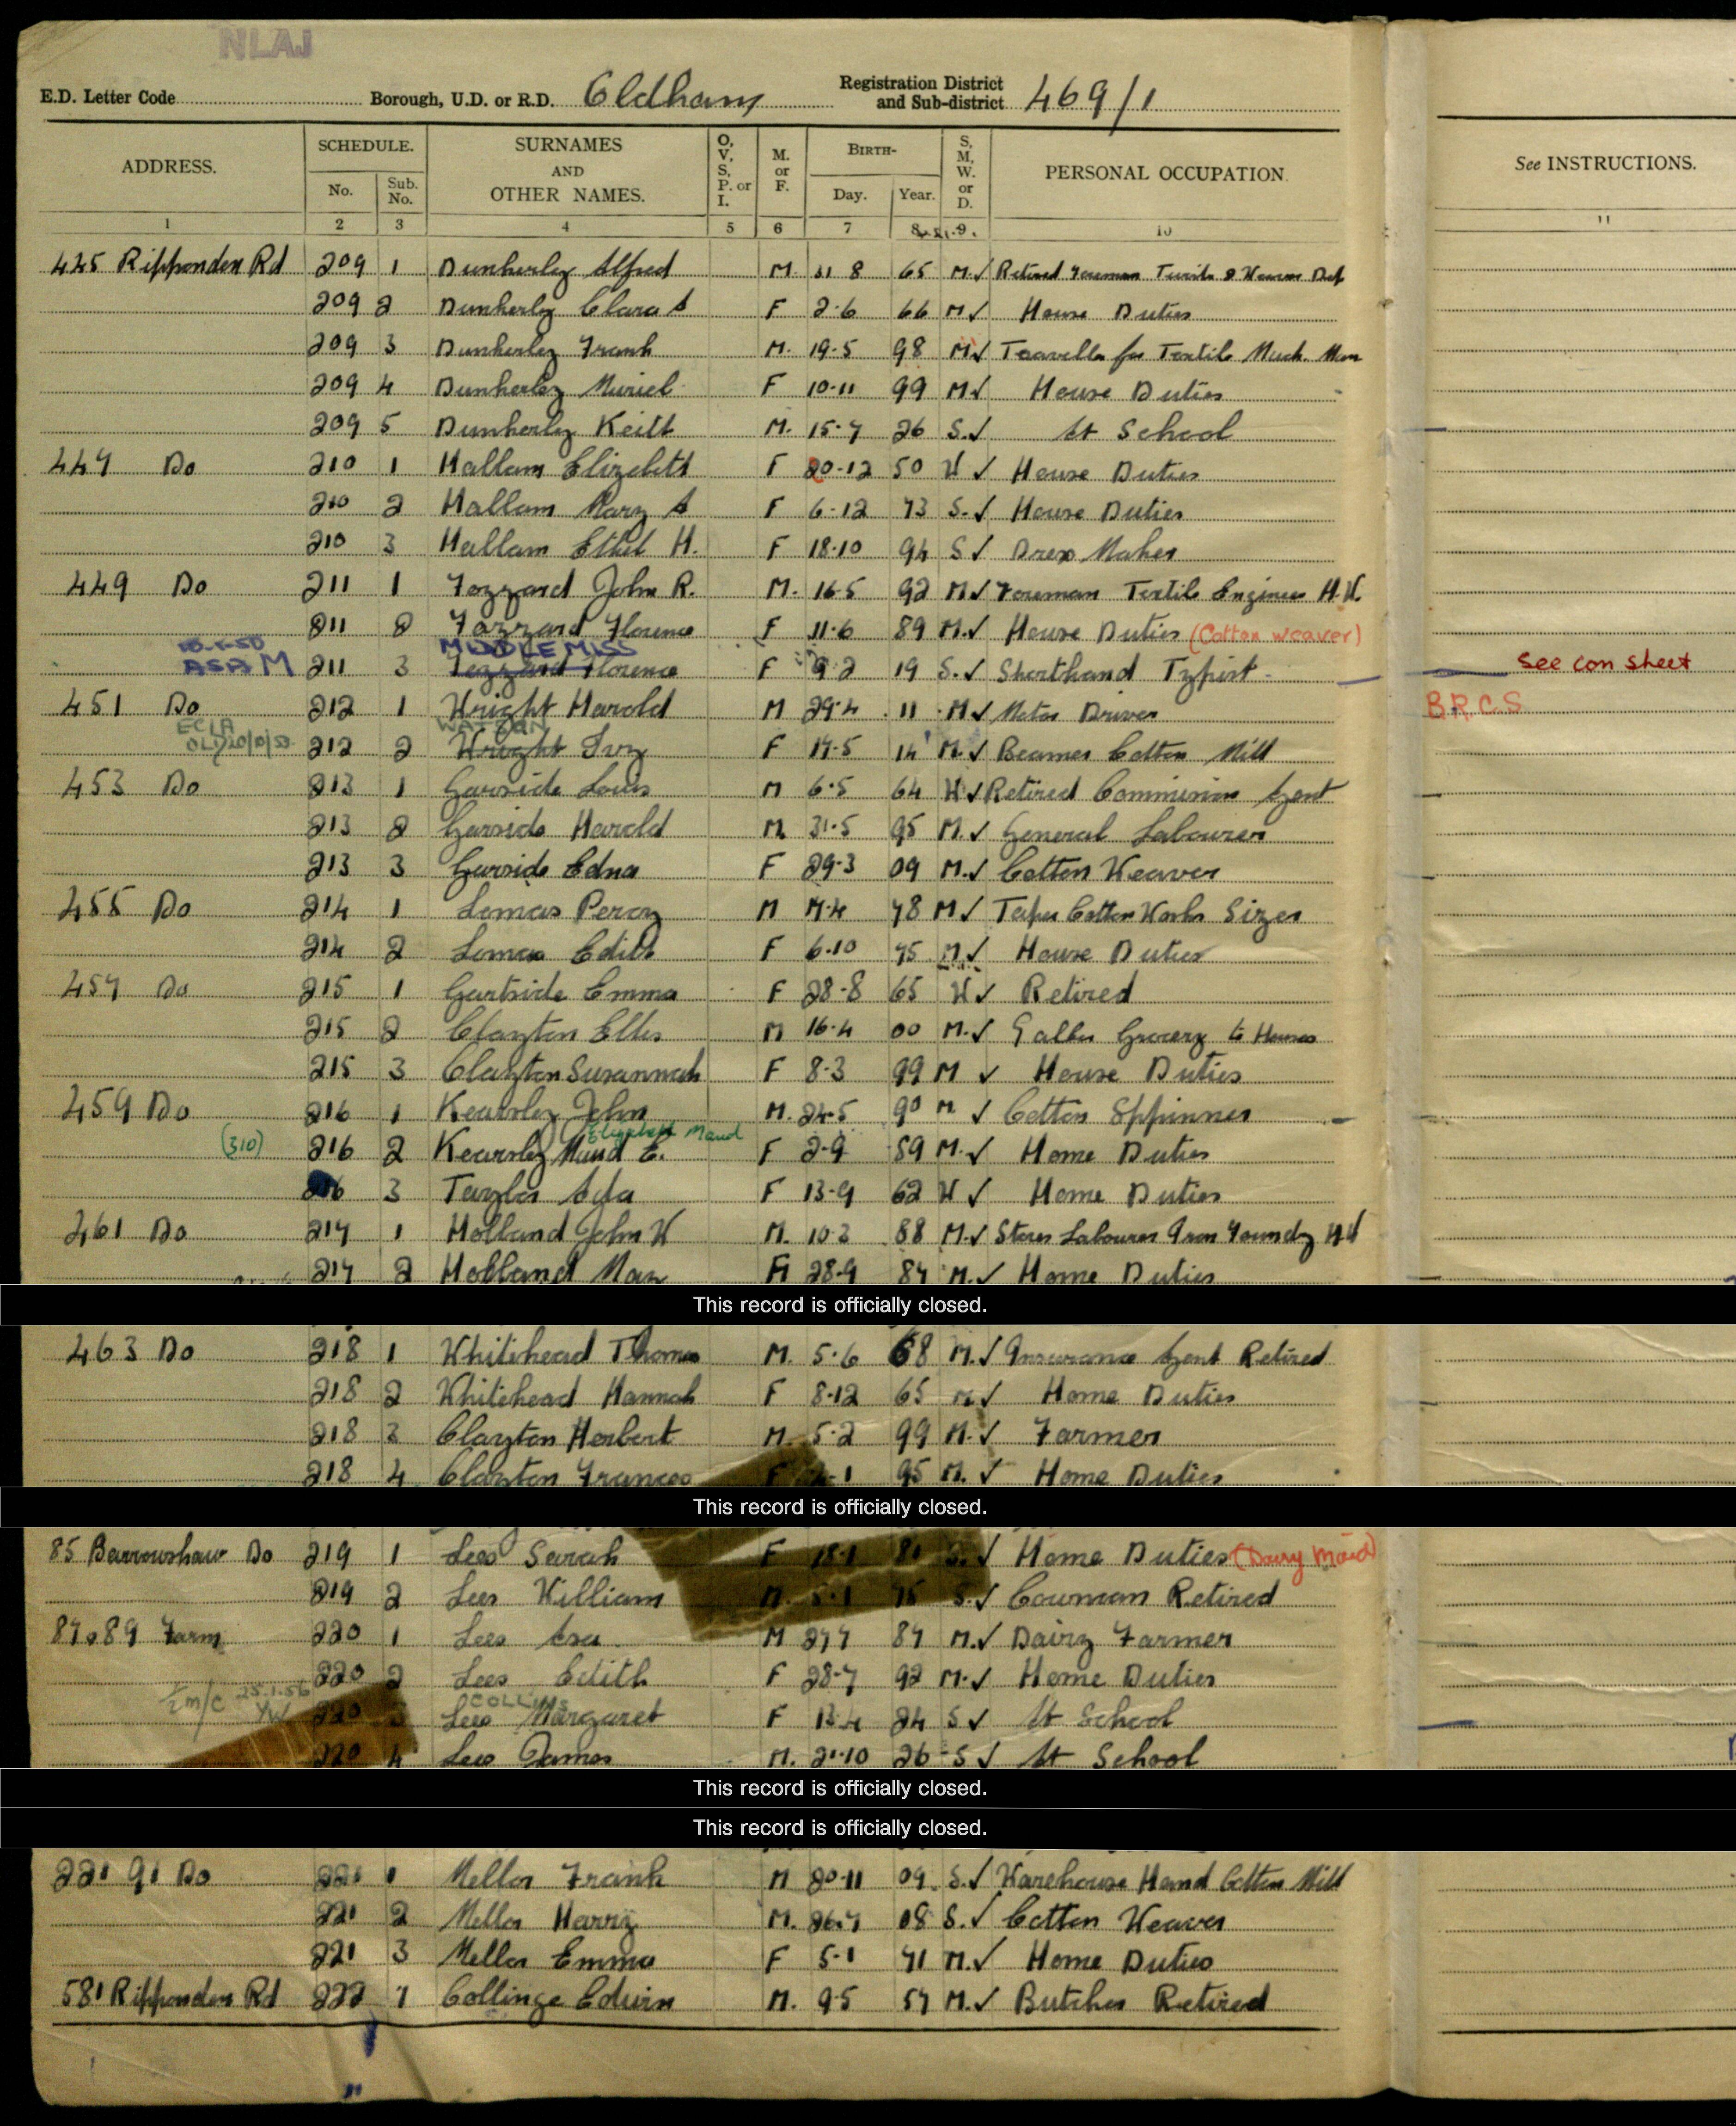 NLAJ
E.D. Letter Code Borough, U.D. or R.D. Oldham Registration District and Sub-district 469/1
ADDRESS. SCHEDULE. No. Sub. No. SURNAMES AND OTHER NAMES. O, V, S, P. or I. M. or F. BIRTH- Day. Year. S, M, W. or D. PERSONAL OCCUPATION See INSTRUCTIONS.
1 2 3 4 5 6 7 8 9 10 11
445 Ripponden Rd 209 1 Dunkerley Alfred M. 8 65 M. ✓ Retired Foreman
209 2 Dunkerley Clara A F 2.6 66 M ✓ House Duties
209 3 Dunkerley Frank M. 19.5 98 M ✓ Traveller for Textile Mach. Man
209 4 Dunkerley Muriel F 10.11 99 M ✓ House Duties
209 5 Dunkerley Keith M. 15.7 26 S. ✓ At School
447 Do 210 1 Hallam Elizabeth F 20.12 50 W ✓ House Duties
210 2 Hallam Mary A F 6.12 73 S. ✓ House Duties
210 3 Hallam Ethel H. F 18.10 94 S ✓ Dress Maker
449 Do 211 1 Fozzard John R. M. 16.5 92 M ✓ Foreman Textile Engineer H.W.
211 2 Fozzard Florence F 11.6 89 M. ✓ House Duties (Cotton weaver)
MIDDLEMISS
ASA M 211 3 Fozzard Florence F 9.2 19 S. ✓ Shorthand Typist See con sheet
451 Do 212 1 Wright Harold M 29.4 11 M ✓ Motor Driver B.R.C.S
ECLA WATSON
OL 212 2 Wright Ivy F 17.5 14 M. ✓ Beamer Cotton Mill
453 Do 213 1 Garside Louis M 6.5 64 W ✓ Retired Commission Agent
213 2 Garside Harold M 31.5 95 M. ✓ General Labourer
213 3 Garside Edna F 29.3 09 M. ✓ Cotton Weaver
455 Do 214 1 Lomas Percy M 7.4 78 M ✓ Taper Cotton Sizer
214 2 Lomas Edith F 6.10 75 M ✓ House Duties
457 Do 215 1 Gartside Emma F 28.8 65 W ✓ Retired
215 2 Clayton Ellis M 16.4 00 M. ✓ Grocery to Houses
215 3 Clayton Susannah F 8.3 99 M ✓ House Duties
459 Do 216 1 Kearsley John M. 24.5 90 M ✓ Cotton Sppinner
Elizabeth Maud
(310) 216 2 Kearsley Maud E. F 2.9 89 M. ✓ Home Duties
216 3 Taylor Ada F 13.9 62 W ✓ Home Duties
461 Do 217 1 Holland John W M. 10.3 88 M. ✓ Stores Labourer Iron Foundry HW
217 2 Holland May F 28.9 87 M. ✓ Home Duties
This record is officially closed.
463 Do 218 1 Whitehead Thomas M. 5.6 68 M. ✓ Insurance Agent Retired
218 2 Whitehead Hannah F 8.12 65 M ✓ Home Duties
218 3 Clayton Herbert M. 5.2 99 M. ✓ Farmer
218 4 Clayton Frances F 1 95 M. ✓ Home Duties
This record is officially closed.
85 Barrowshaw Do 219 1 Lees Sarah F 18.1 81 S. ✓ Home Duties (Dairy Maid)
219 2 Lees William M. 5.1 75 S. ✓ Cowman Retired
87 & 89 Farm 220 1 Lees Asa M 27.7 87 M. ✓ Dairy Farmer
220 2 Lees Edith F 28.7 92 M. ✓ Home Duties
m/c 25.1.56 COLLINS
220 3 Lees Margaret F 13.4 24 S ✓ At School
220 4 Lees James M. 21.10 26 S ✓ At School
This record is officially closed.
This record is officially closed.
221 91 Do 221 1 Mellor Frank M 20.11 09 S. ✓ Warehouse Hand Cotton Mill
221 2 Mellor Harry M. 26.7 08 S. ✓ Cotton Weaver
221 3 Mellor Emma F 5.1 71 M. ✓ Home Duties
581 Ripponden Rd 222 1 Collinge Edwin M. 9.5 57 M. ✓ Butcher Retired